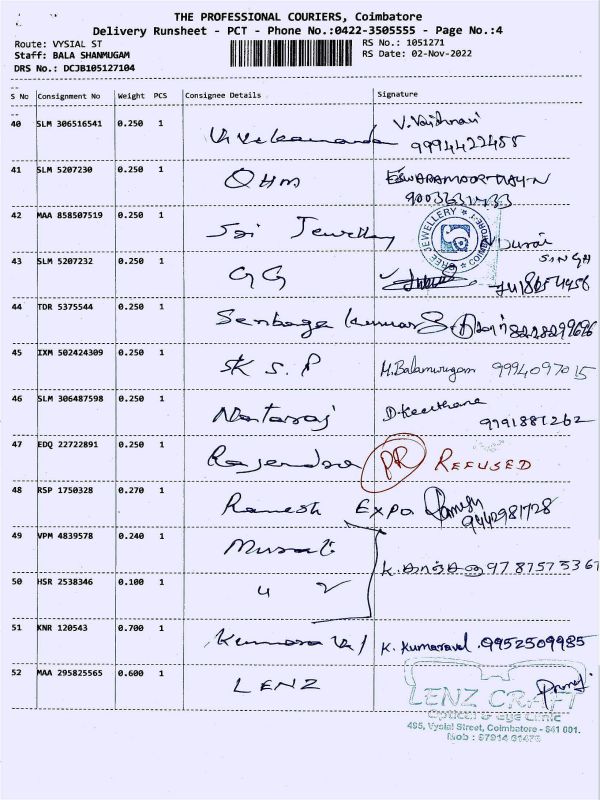 THE PROFESSIONAL COURIERS, Coimbatore
Delivery Runsheet - PCT - Phone No.:0422-3505555 - Page No.:4
Route: VYSIAL ST
Staff: BALA SHANMUGAM
DRS No.: DCJB105127104
RS No.: 1051271
RS Date: 02-Nov-2022
S No Consignment No Weight PCS Consignee Details Signature
40 SLM 306516541 0.250 1 Vivekananda V. Vaishnavi
9994422455
41 SLM 5207230 0.250 1 OHM ESWARAMOORTHAY-N
42 MAA 858507519 0.250 1 Sri Jewellery
JEWELLERY COIMBATORE-1
43 SLM 5207232 0.250 1 GG SINGH
44 TDR 5375544 0.250 1 Senbaga Kumar 8228299696
45 IXM 502424309 0.250 1 SK S.P M.Balamurugan 9994097015
46 SLM 306487598 0.250 1 Nataraj D.Keerthana
9791881262
47 EDQ 22722891 0.250 1 Rajendra PR REFUSED
48 RSP 1750328 0.270 1 Ramesh Expo Ramesh
9442981728
49 VPM 4839578 0.240 1 Murali
9787575367
50 HSR 2538346 0.100 1 "
51 KNR 120543 0.700 1 Kumaravel K. Kumaravel. 9952509985
52 MAA 295825565 0.600 1 LENZ
LENZ CRAFT
Optical & Eye Clinic
495, Vysial Street, Coimbatore - 641 001.